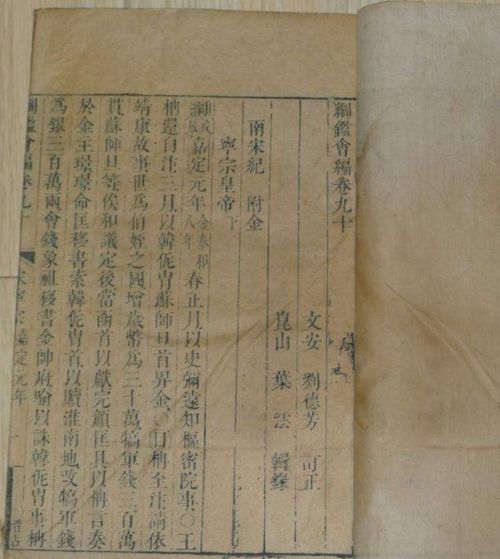 綱鑑會編卷九十
文安 劉德芳 訂正
崑山 葉澐 輯錄
南宋紀 附金
寧宗皇帝下
綱戊辰嘉定元年金泰和八年春正月以史彌遠知樞密院事〇王
柟還自汴三月以韓侂冑蘇師旦首畀金〇目柟至汴請依
靖康故事世爲伯姪之國增歲幣爲三十萬犒軍錢三百萬
貫蘇師旦等俟和議定後當函首以獻完顏匡具以柟言奏
於金主璟璟命匡移書索韓侂冑首以贖淮南地改犒軍錢
爲銀三百萬兩會錢象祖移書金帥府喻以誅韓侂冑事柟
綱鑑會編卷九十
宋寧宗嘉定元年
一